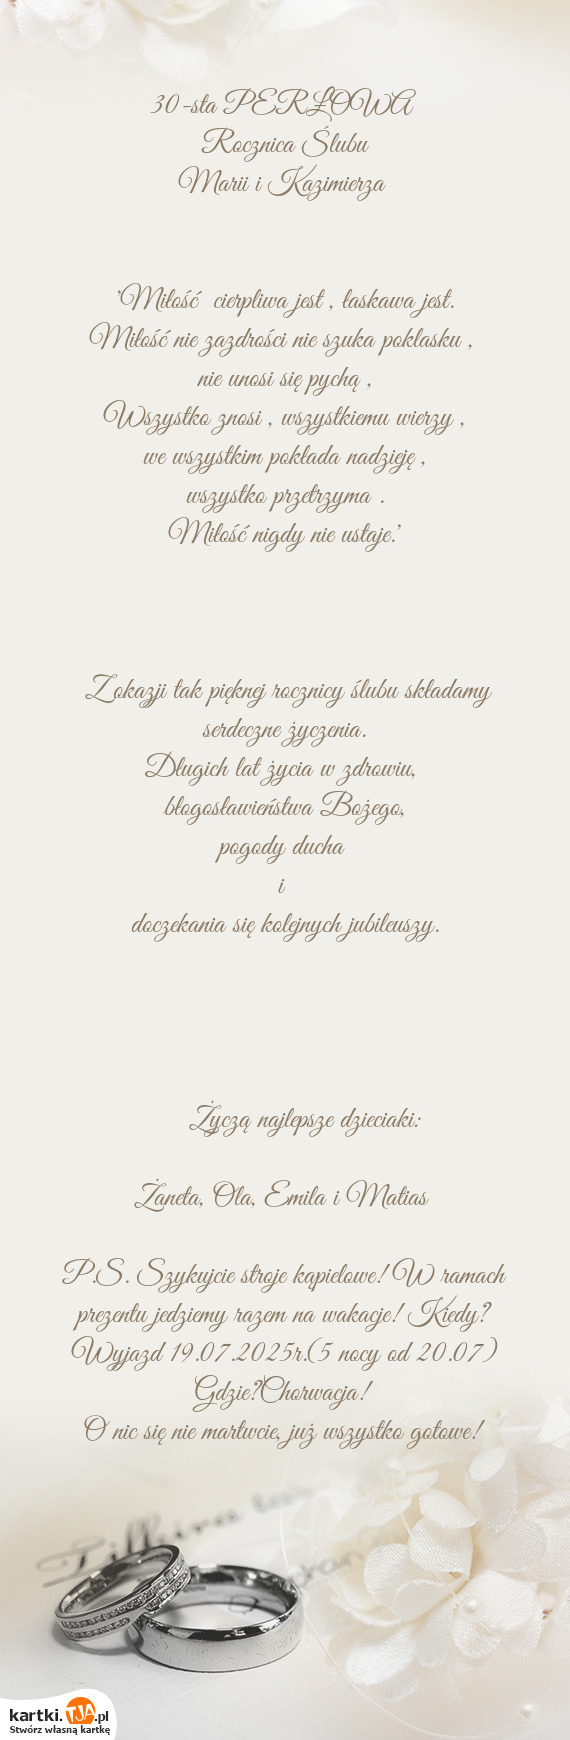 30-sta PERŁOWA
Rocznica Ślubu
Marii i Kazimierza
'Miłość cierpliwa jest , łaskawa jest.
Miłość nie zazdrości nie szuka poklasku ,
nie unosi się pychą ,
Wszystko znosi , wszystkiemu wierzy ,
we wszystkim pokłada nadzieję ,
wszystko przetrzyma .
Miłość nigdy nie ustaje.'
Z okazji tak pięknej rocznicy ślubu składamy
serdeczne życzenia.
Długich lat życia w zdrowiu,
błogosławieństwa Bożego,
pogody ducha
i
doczekania się kolejnych jubileuszy.
Życzą najlepsze dzieciaki:
Żaneta, Ola, Emila i Matias
P.S. Szykujcie stroje kąpielowe! W ramach
prezentu jedziemy razem na wakacje! Kiedy?
Wyjazd 19.07.2025r.(5 nocy od 20.07)
Gdzie?Chorwacja!
O nic się nie martwcie, już wszystko gotowe!
kartki.TJA.pl
Stwórz własną kartkę